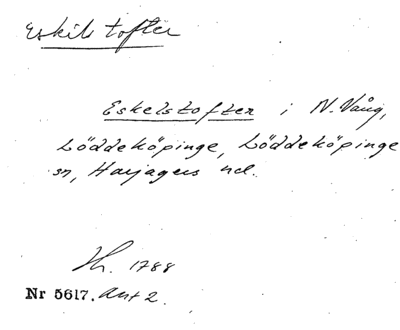 Eskils tofter
Eskelstofter i N. Vång,
Löddeköpinge, Löddeköpinge
sn, Harjagers hd.
Hr. 1788
Nr 5617. Akt 2.